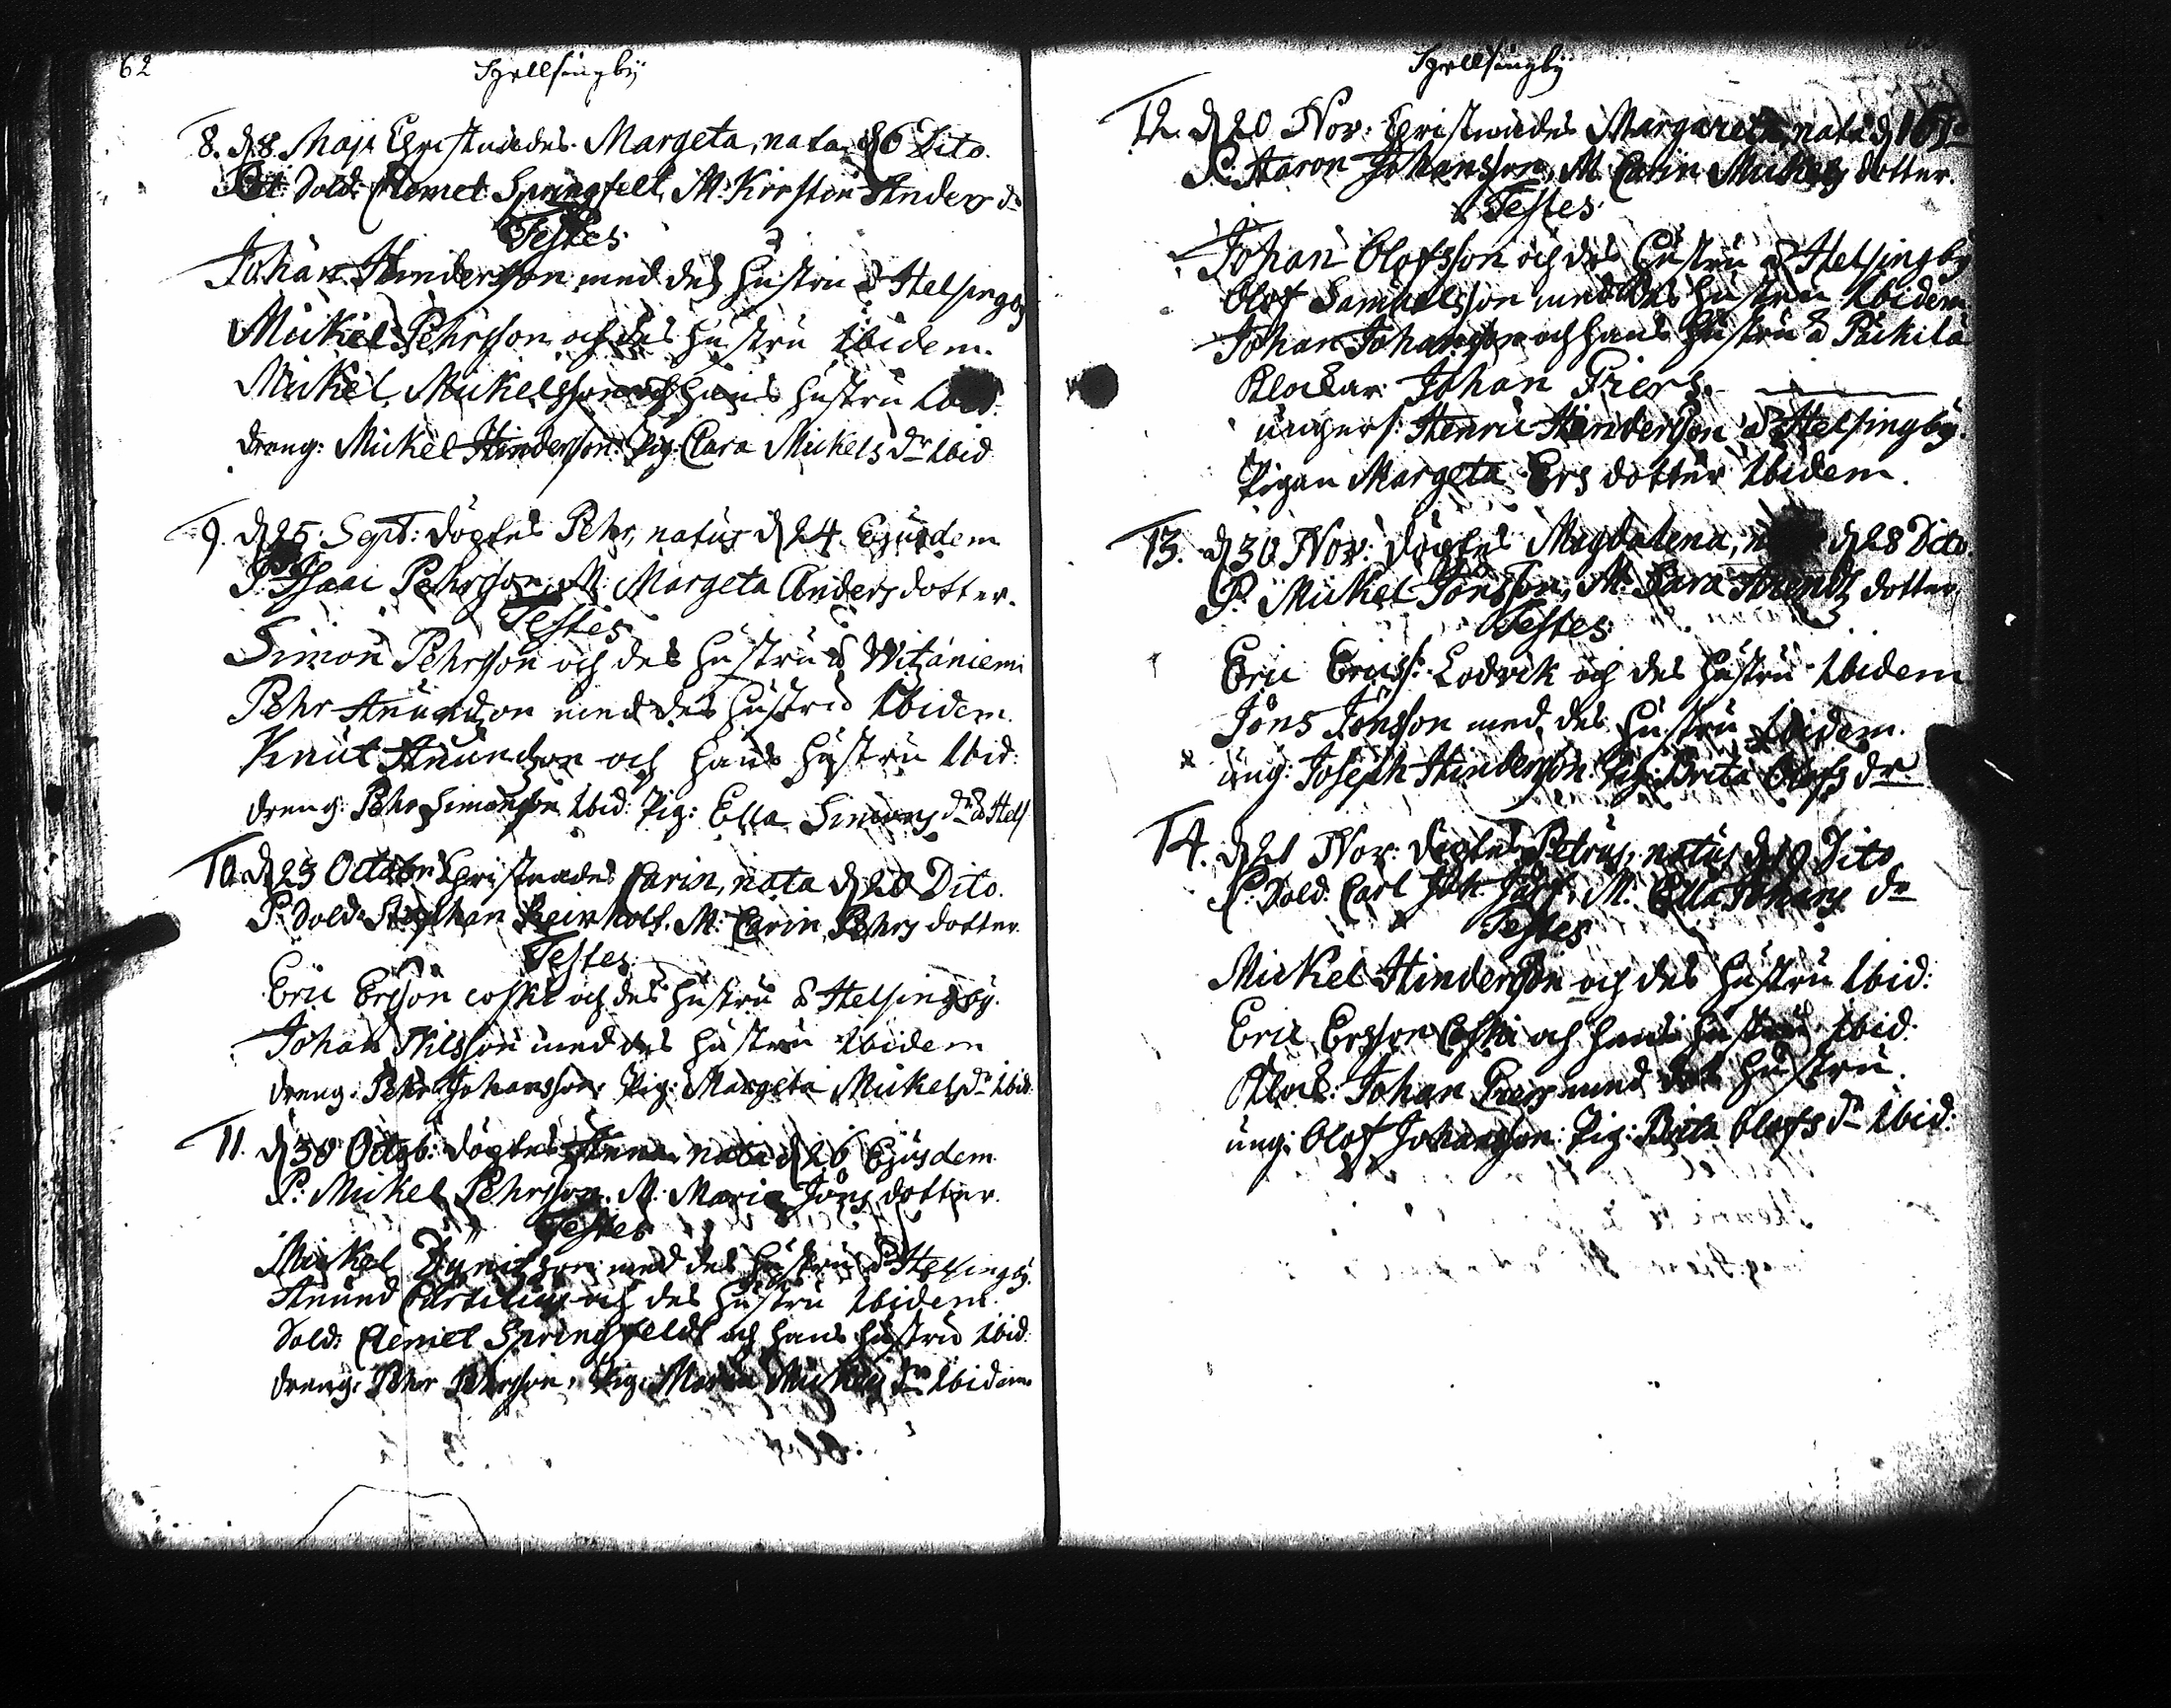 62
Hellsingby
8. d. 8 Maji Christnades Margeta, nata d 6 Dito.
Pat: Sold: Clemet Springfelt, M. Kirstin Anders dr
Testes
Johan Hindersson med des hustru a Helsingby
Mickel Pehrsson och des hustru Ibidem.
Mickel Mickelsson och hans hustru Ibid.
dreng: Mickel Hindersson. Pig: Clara Mickels dr Ibid
9. d 25 Sept: döptes Pehr, natus d 24 Ejusdem
P. Isaac Pehrsson, M. Margeta Anders dotter.
Testes
Simon Pehrsson och des hustru a Witzaniemi
Pehr Anundzon med des hustru Ibidem.
Knut Anundzon och hans hustru Ibid:
dreng: Pehr Simonsson Ibid: Pig: Ella Simons dr a Hels
10. d 23 Octobr Christnades Carin, nata d 20 Dito.
P. Sold: Stephan Reinholt. M. Carin Pehrs dotter.
Testes
Eric Ersson coski och des hustru a Helsingby.
Johan Nilsson med des hustru Ibidem
dreng: Pehr Johansson. Pig: Margeta Mickels dr Ibid.
11. d 30 Octob: döptes Anna nata d 26 Ejusdem
P: Mickel Pehrsson. M. Maria Jöns dotter.
Testes
Mickel med des hustru a Helsingby.
Anund och des hustru Ibidem.
Sold: Clemet Springfeldt och hans hustru Ibid.
dreng: Pehr Pehrsson, Pig: Maria Mickels dr Ibidem
Hellsingby
12. d 20 Nov: Christnades Margareta, nata d 16
P. Aaron Johansson, M. Carin Mickels dotter.
Testes
Johan Olofsson och des hustru a Helsingby
Olof Samuelsson med des hustru Ibidem
Johan Johansson och hans hustru a Päikilä
Klockar: Johan Frers.
ungers: Henric Hindersson a Helsingby.
Pigan Margeta Ers dotter Ibidem.
13. d 30 Nov: döptes Magdalena, d 28 Dito
P. Mickel Jönsson, M. Sara dotter
Testes
Eric Ericss: Lodvik och des hustru Ibidem
Jöns Jönsson med des hustru Ibidem.
ung: Joseph Hindersson. Pig: Brita Olofs dr
14. d 21 Nov: döptes Petrus, natus d 19 Dito
P. Sold. Carl M. Ella Johans dr
Testes
Mickel Hindersson och des hustru Ibid:
Eric Ersson Coski och hans hustru Ibid.
Klock: Johan Frers med des hustru.
ung: Olof Johansson: Pig: Brita Olofs dr Ibid: